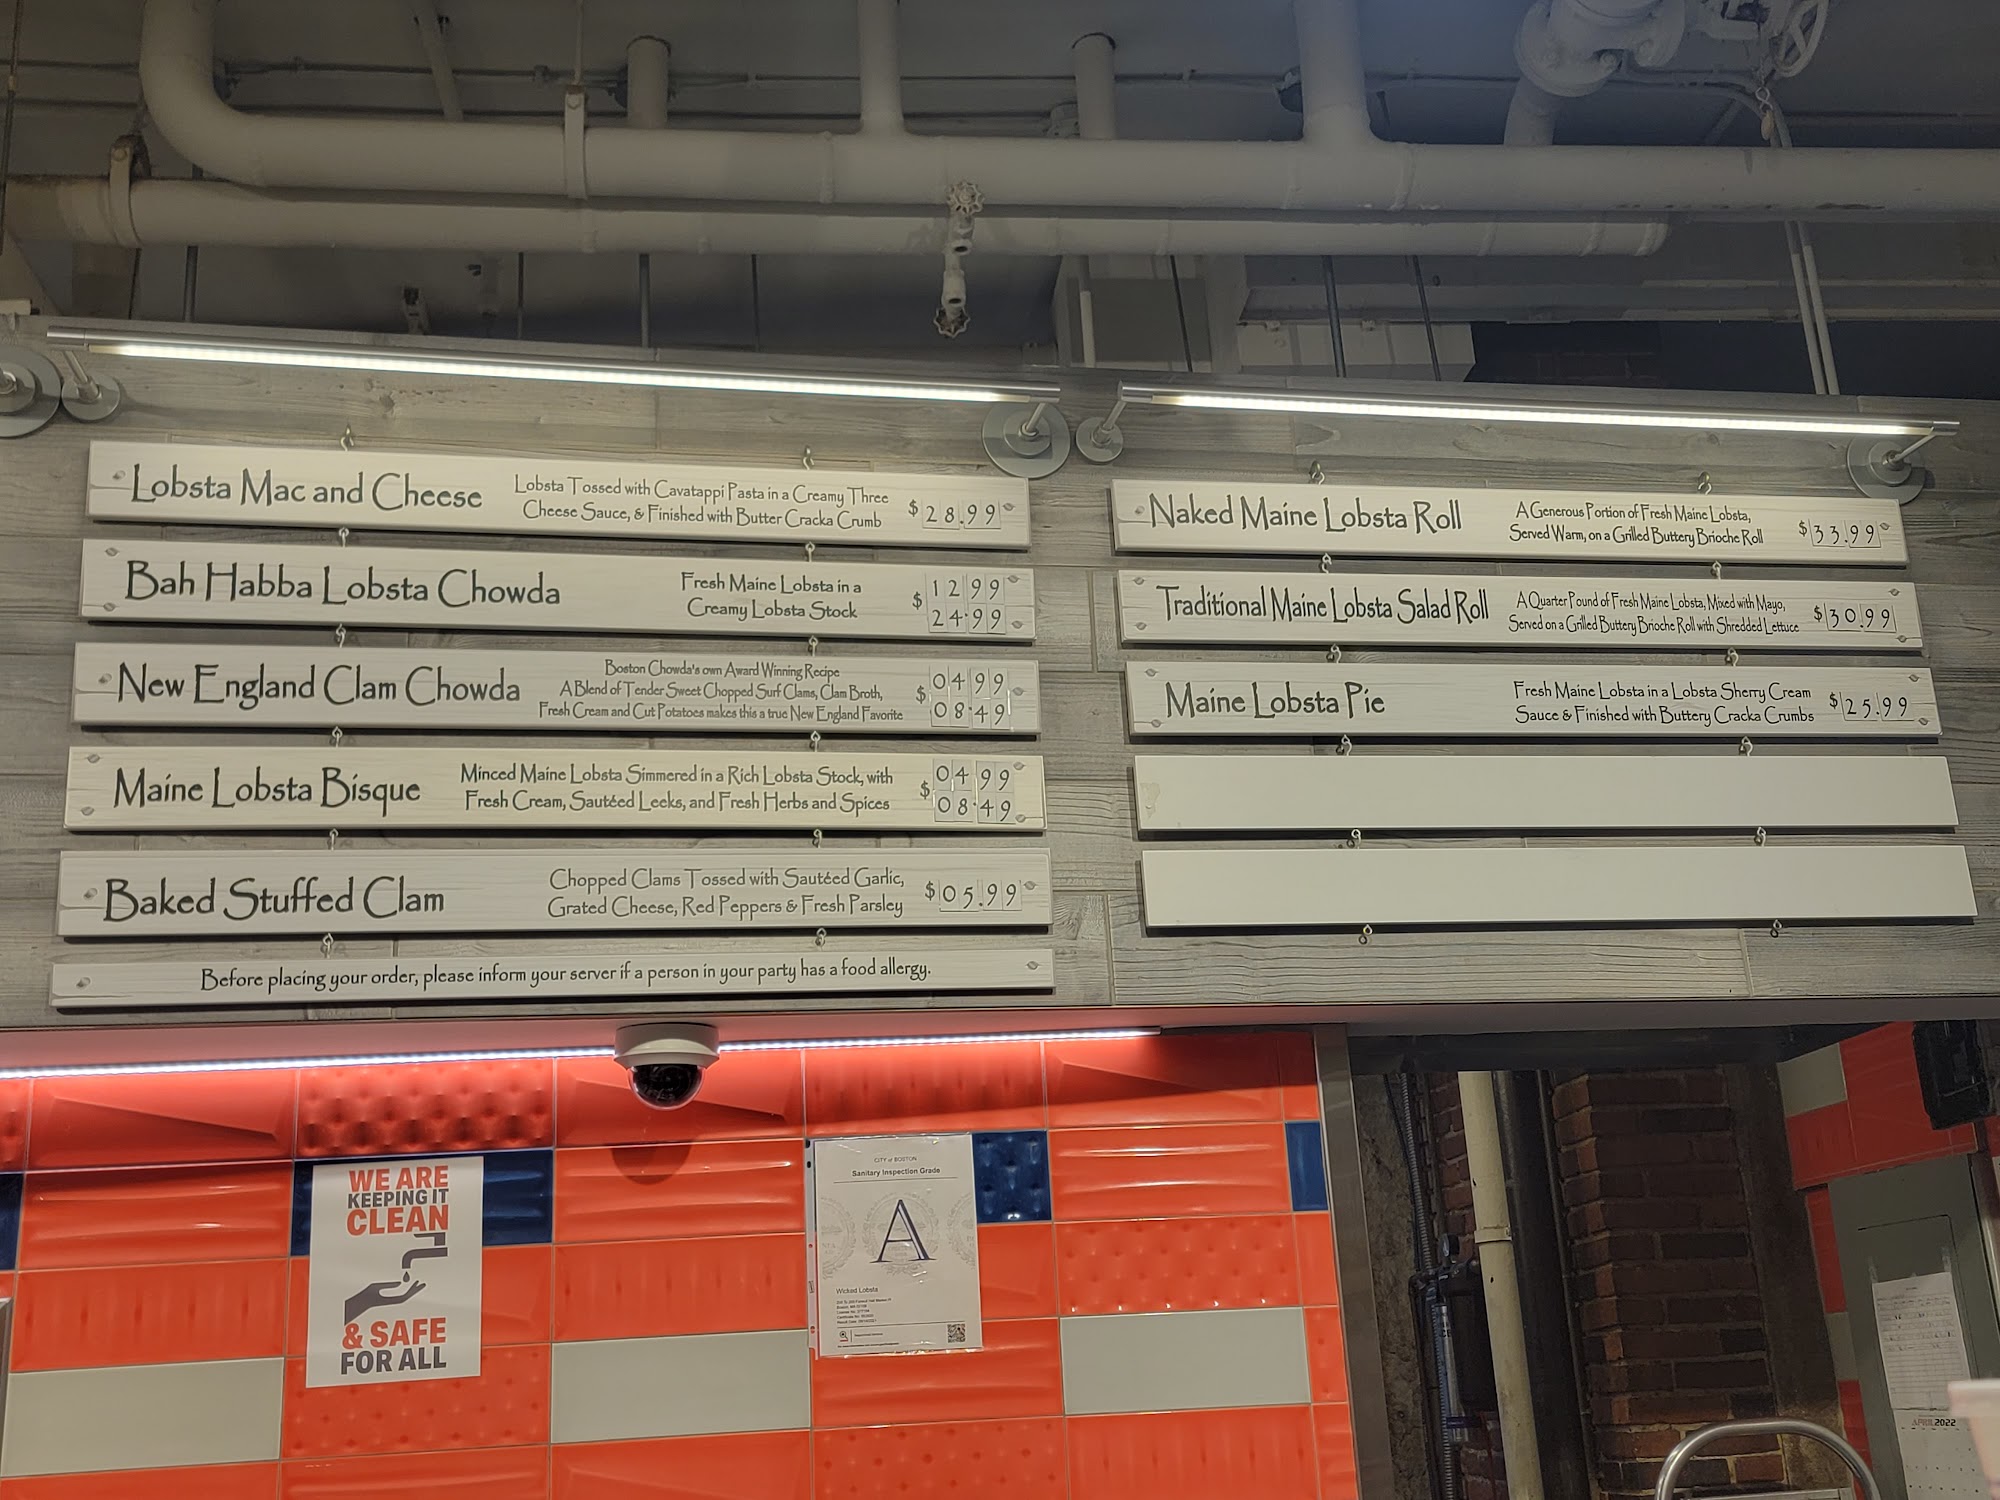 Lobsta Mac and Cheese
Lobsta Tossed with Cavatappi Pasta in a Creamy Three
Cheese Sauce, & Finished with Butter Cracka Crumb
$28.99
Bah Habba Lobsta Chowda
Fresh Maine Lobsta in a
Creamy Lobsta Stock
$ 12 99
24.99
New England Clam Chowda
Boston Chowda's own Award Winning Recipe
A Blend of Tender Sweet Chopped Surf Clams, Clam Broth,
Fresh Cream and Cut Potatoes makes this a true New England Favorite
$ 04 99
08.49
Maine Lobsta Bisque
Minced Maine Lobsta Simmered in a Rich Lobsta Stock, with
Fresh Cream, Sautéed Leeks, and Fresh Herbs and Spices
$ 04 99
08.49
Baked Stuffed Clam
Chopped Clams Tossed with Sautéed Garlic,
Grated Cheese, Red Peppers & Fresh Parsley
$05.99
Before placing your order, please inform your server if a person in your party has a food allergy.
Naked Maine Lobsta Roll
A Generous Portion of Fresh Maine Lobsta,
Served Warm, on a Grilled Buttery Brioche Roll
$33.99
Traditional Maine Lobsta Salad Roll
A Quarter Pound of Fresh Maine Lobsta, Mixed with Mayo,
Served on a Grilled Buttery Brioche Roll with Shredded Lettuce
$30.99
Maine Lobsta Pie
Fresh Maine Lobsta in a Lobsta Sherry Cream
Sauce & Finished with Buttery Cracka Crumbs
$25.99
WE ARE
KEEPING IT
CLEAN
& SAFE
FOR ALL
CITY of BOSTON
Sanitary Inspection Grade
A
Wicked Lobsta
APRIL2022